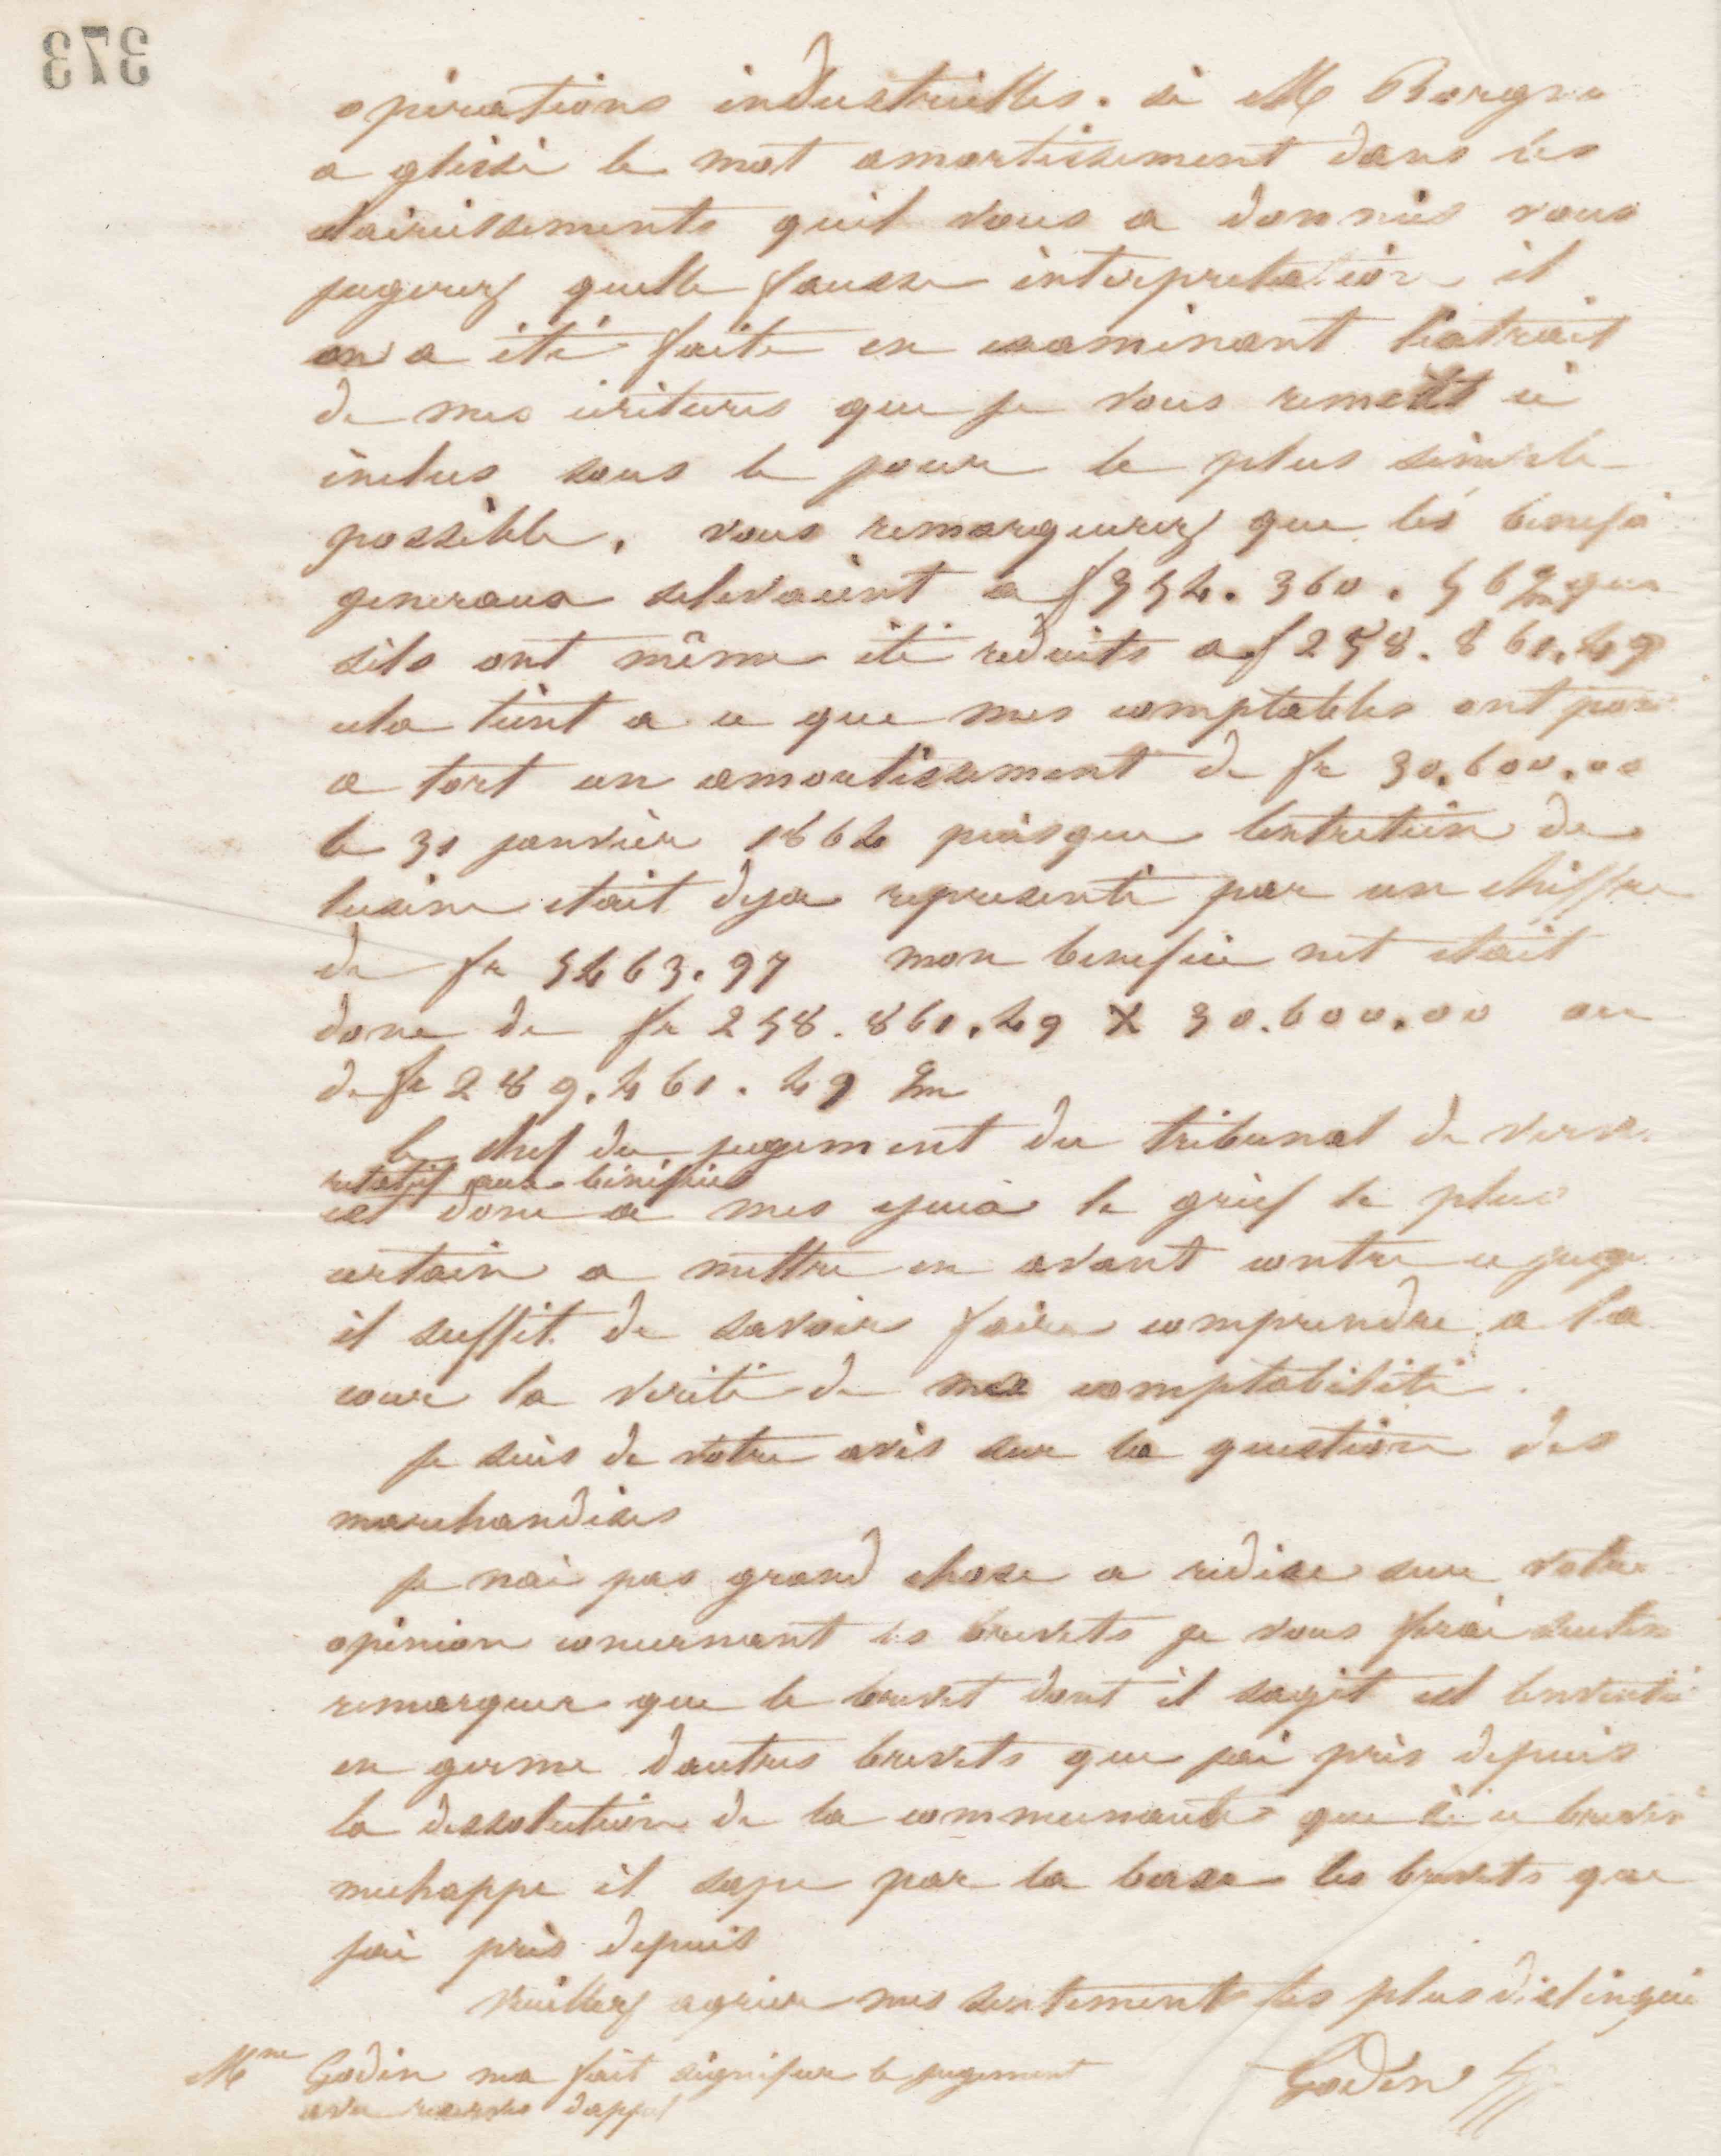 373
operations industrielles. si M Borgne
a glissé le mot amortissement dans les
claircissements quil vous a donnés vous
jugerez quelle fausse interpretation il
en a été faite en examinant lextrait
de mes ecritures que je vous remets ci
inclus sous le jour le plus simple
possible. vous remarquerez que les benefi
generaux selevaient a f 354.360.56 que
sils ont même été reduits a f 258.861.49
cela tient a ce que mes comptables ont
a tort un amortissement de fr 30.600.00
le 31 janvier 1864 puisque lentretien de
lusine etait deja representé par un chiffre
de fr 5463.97 mon benefice net etait
donc de fr 258.861.49 X 30.600.00 ou
de fr 289.461.49
le chef du jugement du tribunal de verv
relatif aux bénéfices
est donc a mes yeux le grief le plus
certain a mettre en avant contre ce juge
il suffit de savoir faire comprendre a la
cour la verité de ma comptabilité.
je suis de votre avis sur la question des
marchandises
je nai pas grand chose a redire sur votre
opinion concernant les brevets je vous ferai
remarquer que le brevet dont il sagit est
en germe dautres brevets que jai pris depuis
la dissolution de la communauté que si ce brevet
mechappe il sape par la base les brevets que
jai pris depuis
veuillez agréer mes sentiments les plus distingué
Godin
Mme Godin ma fait signifier le jugement
avec reserves dappel